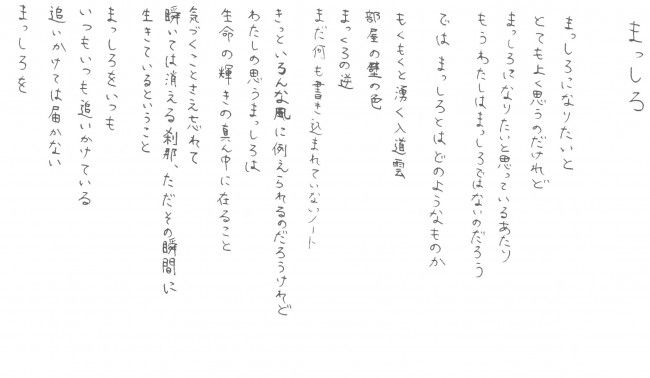 まっしろ
まっしろになりたいと
とてもよく思うのだけれど
まっしろになりたいと思っているあたり
もうわたしはまっしろではないのだろう
では まっしろとはどのようなものか
もくもくと湧く入道雲
部屋の壁の色
まっくろの逆
まだ何も書き込まれていないノート
きっといろんな風に例えられるのだろうけれど
わたしの思うまっしろは
生命の輝きの真ん中に在ること
気づくことさえ忘れて
瞬いては消える刹那、ただその瞬間に
生きているということ
まっしろをいつも
いつもいつも追いかけている
追いかけては届かない
まっしろを